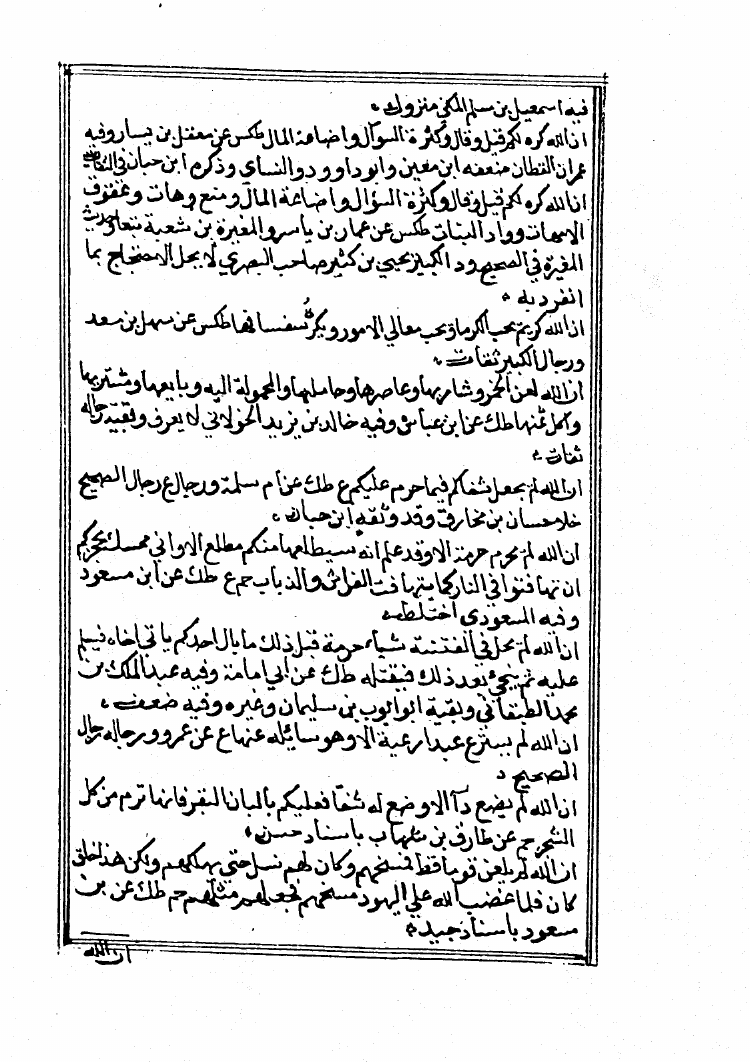 فيه اسمعيل بن مسلم المكي متروك
ان الله كره لكم قيل وقال وكثرة السوآل واضاعة المال طكس عن معقل بن يسار وفيه
عمران القطان ضعفه ابن معين وابو داوود والنساي وذكره ابن حبان في الثقات
ان الله كره لكم قيل وقال وكثرة السؤال واضاعة المال ومنع وهات وعقوق
الامهات وواد البنات طكس عن عمار بن ياسر والمغيرة بن شعبة حديث
المغيرة في الصحيح ود الكبير يحيي بن كثير صاحب البصري لا يحل الاحتجاج بما
انفرد به
ان الله كريم يحب الكرما ويحب معالي الامور ويكره سفسافها طكس عن سهل بن سعد
ورجال الكبير ثقات
ان الله لعن الخمر وشاربها وعاصرها وحاملها والمحمولة اليه وبايعها ومشتريها
واكل ثمنها طك عن ابن عباس وفيه خالد بن يزيد الخولاني لا يعرف وبقية رجاله
ثقات
ان الله لم يجعل شفاكم فيما حرم عليكم ع طك عن ام سلمة ورجال ع رجال الصحيح
خلا حسان بن مخارق وقد وثقه ابن حبان
ان الله لم يحرم حرمة الا وقد علم انه سيطلعها منكم مطلع الا واني ممسك بحجزكم
ان تهافتوا في النار كما يتهافت الفراش والذباب حم ع طك عن ابن مسعود
وفيه المسعودي اختلط
ان الله لم يحل في الفتنة شياء حرمة قبل ذلك ما بال احدكم ياتي اخاه فيسلم
عليه ثم يجيء بعد ذلك فيقتله طك عن ابي امامة وفيه عبد الملك بن
محمد الصنعاني وبقية ابو ايوب بن سليمان وغيره وفيه ضعف
ان الله لم يسترع عبدا رعية الا وهو سايله عنها ع عن عمرو ورجاله رجال
الصحيح د
ان الله لم يضع دآ الا وضع له شفا فعليكم بالبان البقر فانها ترم من كل
الشجر حم عن طارق بن شهاب باسناد حسن
ان الله لم يلعن قوما قط فمسخهم وكان لهم نسل حتي يهلكهم ولكن هذا خلق
كان فلما غضب الله علي اليهود مسخهم فجعلهم مثلهم حم طك عن بن
مسعود باسناد جيد
ان الله